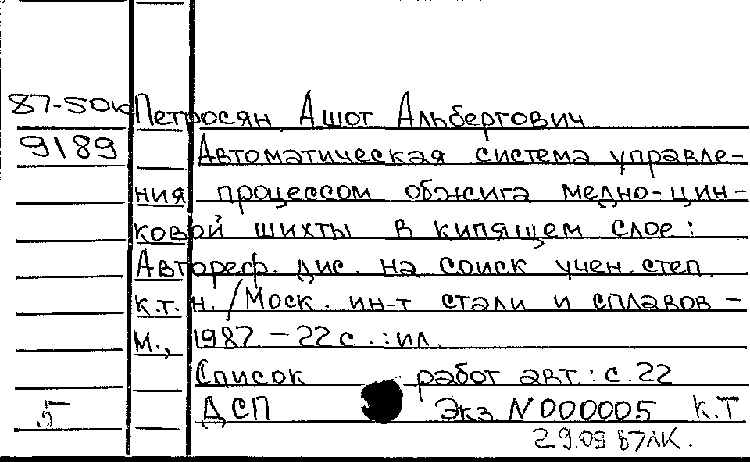 87-50к Петросян Ашот Альбертович
9189 Автоматическая система управле-
ния процессом обжига медно-цин-
ковой шихты в кипящем слое:
Автореф. дис. на соиск учен. степ.
к.т.н. /Моск. ин-т стали и сплавов -
М., 1987. - 22 с. : ил.
Список работ авт. : с. 22
5 ДСП Экз N 000005 К.Т
29.09 87ЛК.